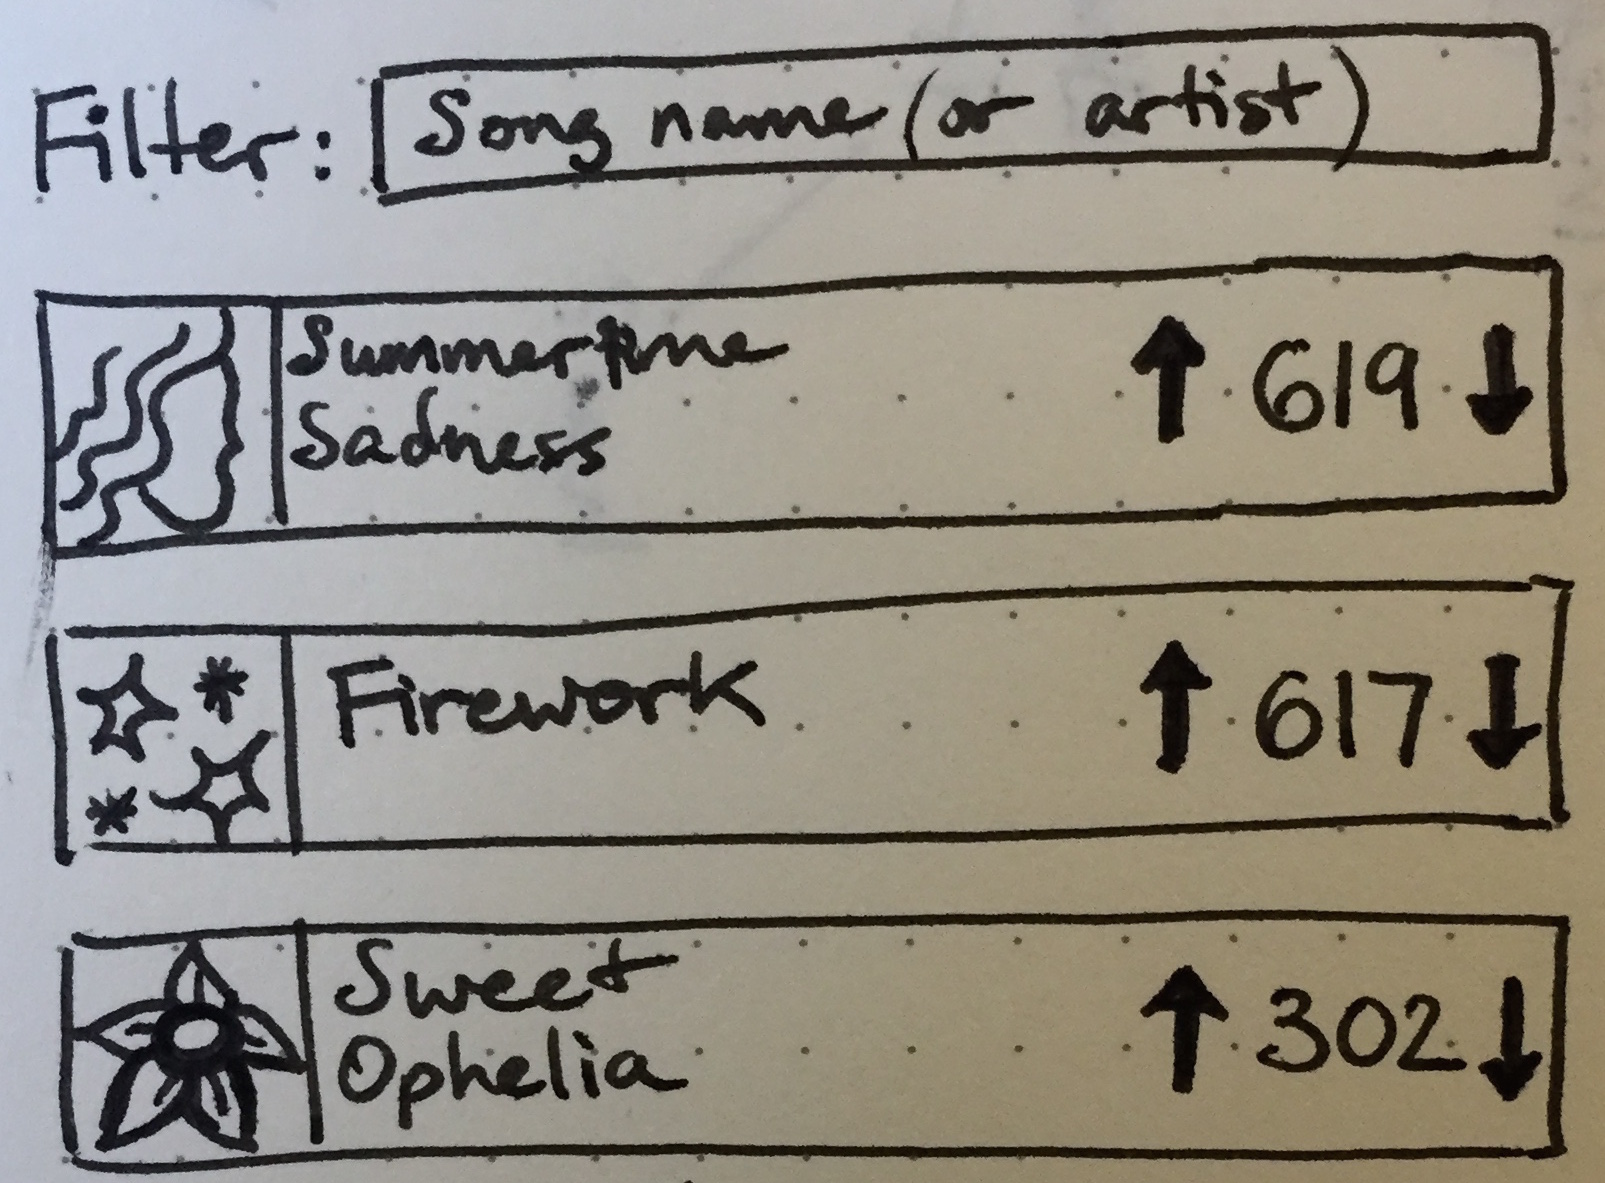 Filter: Song name (or artist)
Summertime
Sadness
↑ 619 ↓
Firework
↑ 617 ↓
Sweet
Ophelia
↑ 302 ↓